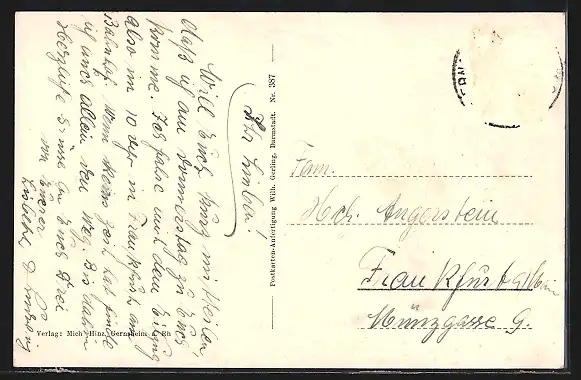 Ihr Lieben!
Will Euch kurz mitteilen,
daß ich am Donnerstag zu Euch
komme. Ich fahre mit dem
also um 10 Uhr in Frankfurt am
Bahnhof. Wenn keine Zeit hat finde
ich auch allein den Weg. Bis dahin
Herzliche Grüsse an Euch Drei
von Eurer
Verlag: Mich. Hinz, Gernsheim a. Rh
Postkarten-Anfertigung Wilh. Gerling, Darmstadt. Nr. 387
Fam.
Hch. Angerstein
Frankfurt a/Main
Münzgasse 9.